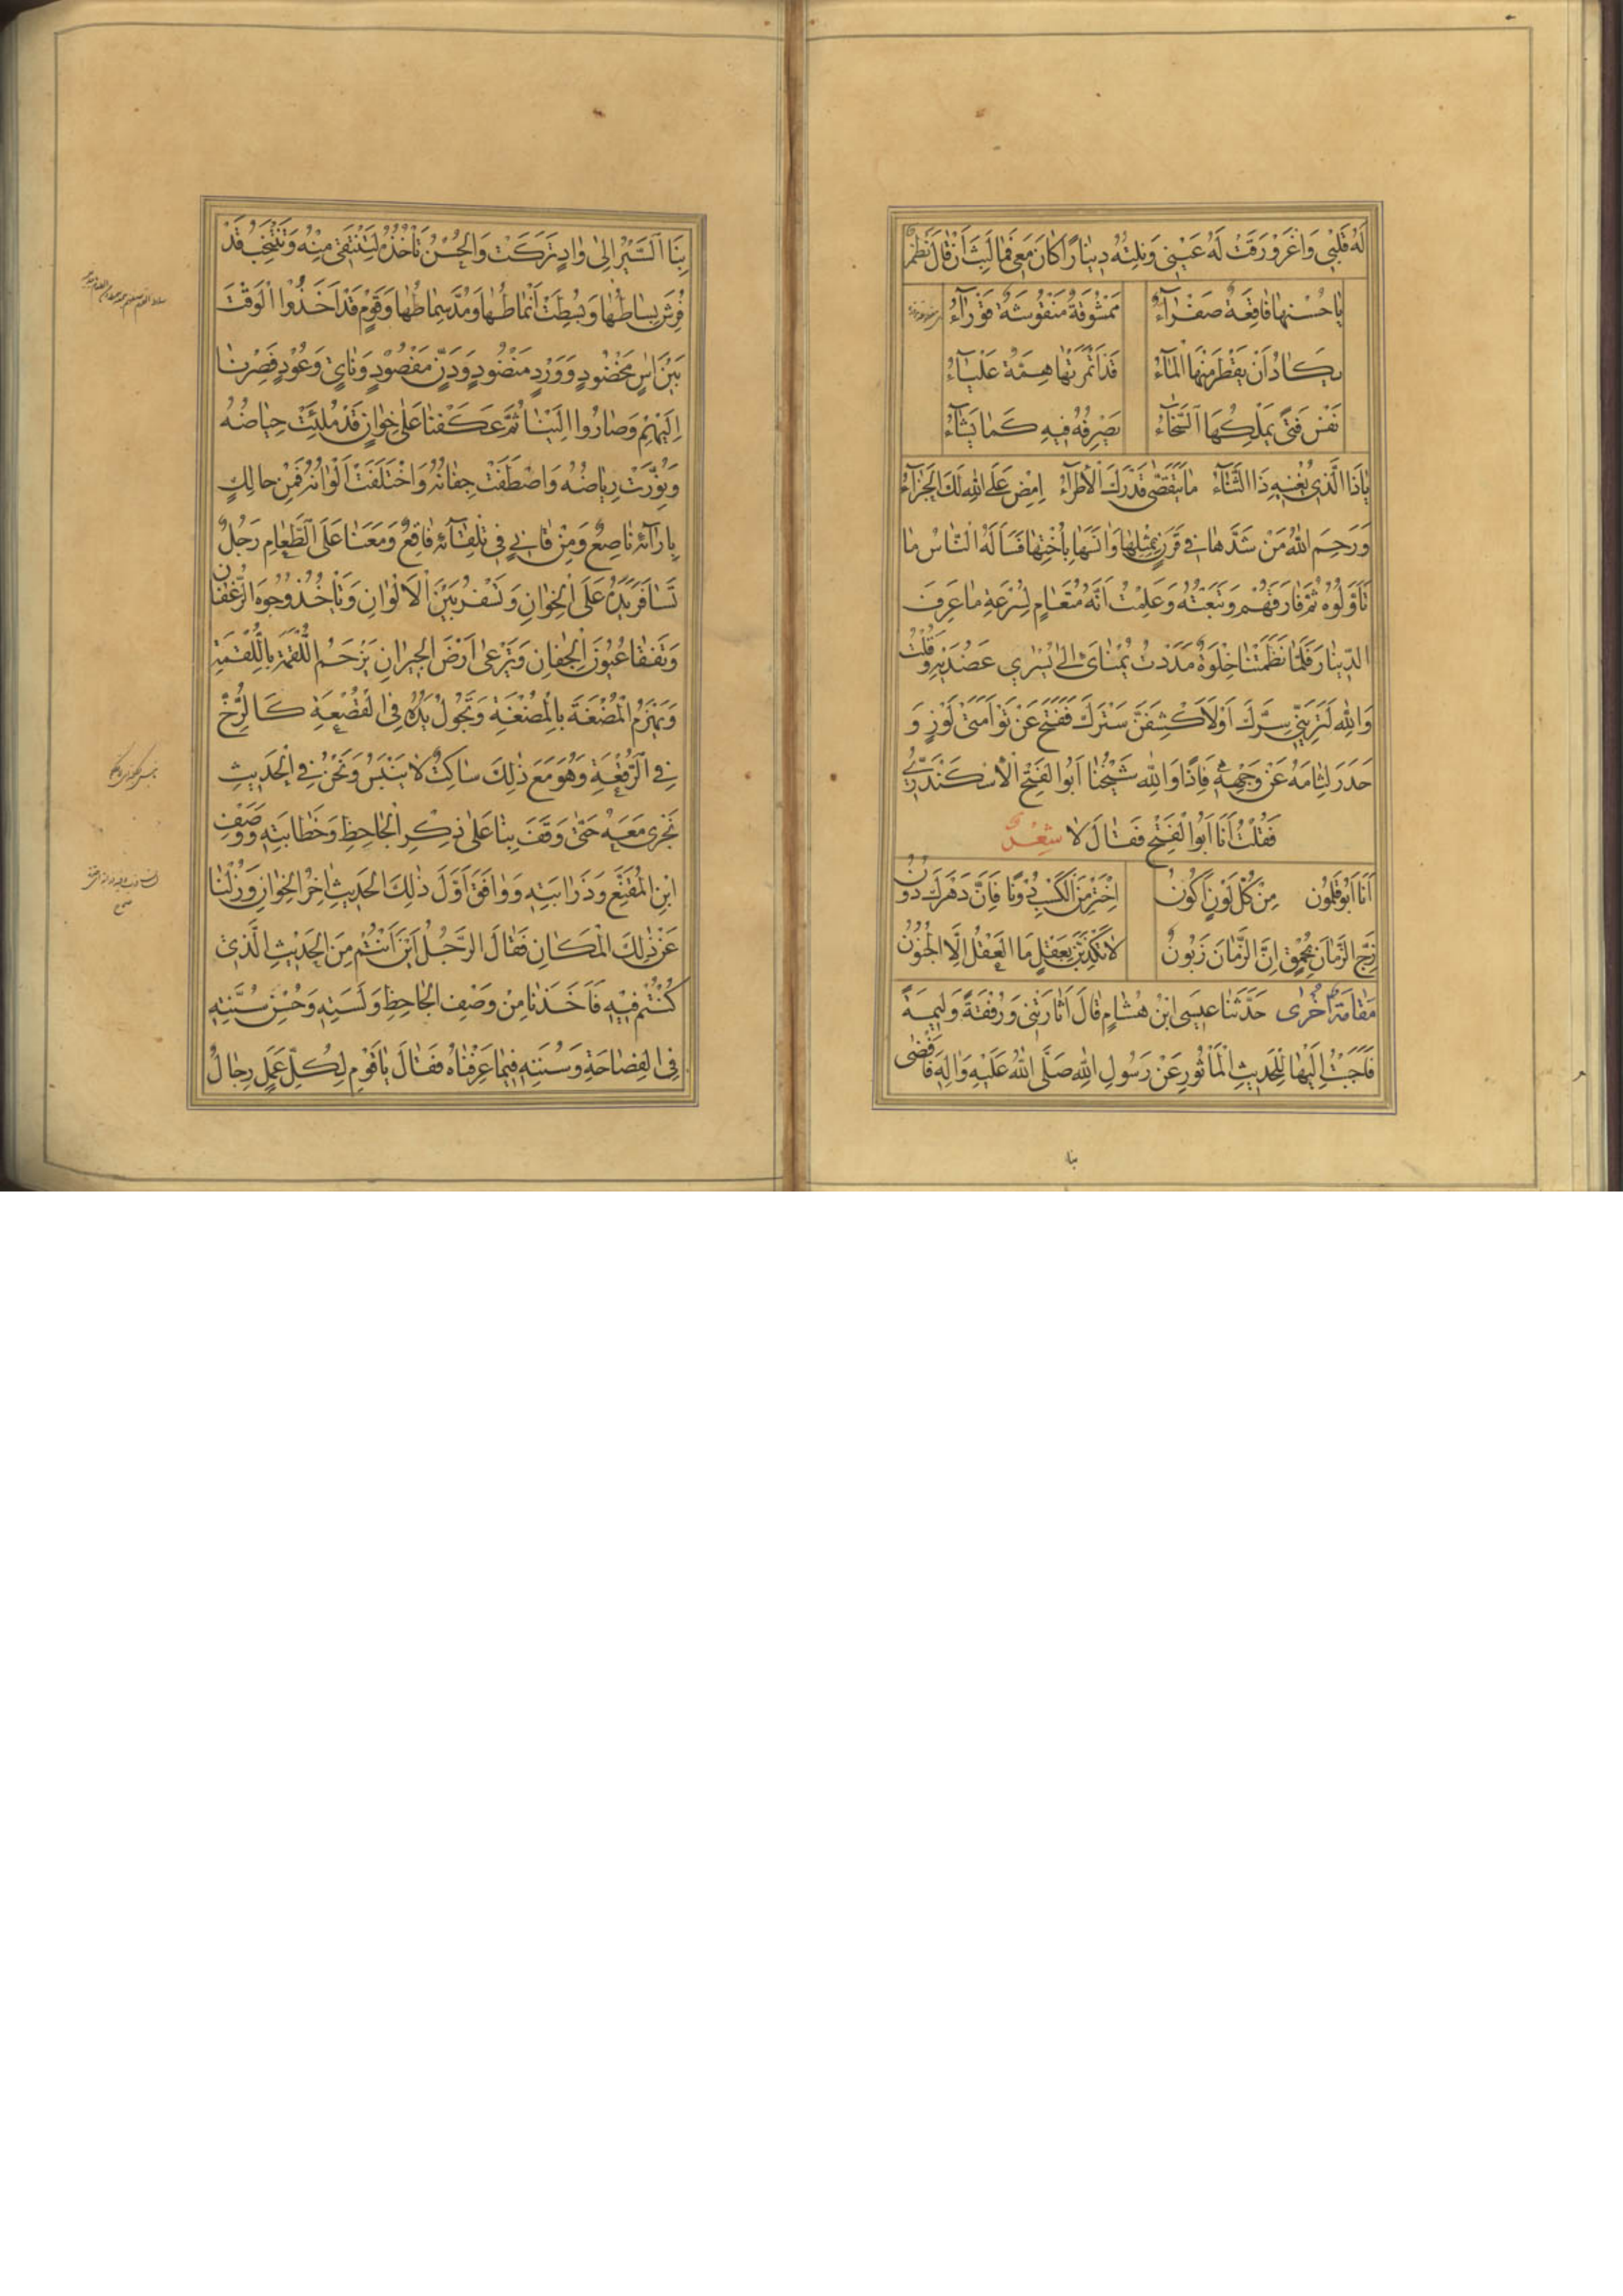 لَهُ قَلْبِي وَاغْرَوْرَقَتْ لَهُ عَيْنِي وَنِلْتُهُ دِينَارًا كَانَ مَعِي فَمَا لَبِثَ أَنْ قَالَ نَظْم
يَا حُسْنَهَا فَاقِعَةٌ صَفْرَآءُ مَمْشُوقَةٌ مَنْقُوشَةٌ قَوْرَآءُ
يَكَادُ أَنْ يَقْطُرَ مِنْهَا الْمَآءُ قَدْ أَثْمَرَتْهَا هِمَّةٌ عَلْيَآءُ
نَفْسُ فَتًى يَمْلِكُهَا السَّخَآءُ يَصْرِفُهُ فِيهِ كَمَا يَشَآءُ
يَا ذَا الَّذِي يُغْنِيهِ ذَا الثَّنَآءُ مَا يَتَقَصَّى قَدْرَكَ الْأَطْرَآءُ اِمْضِ عَلَى اللهِ لَكَ الْجَزَآءُ
وَرَحِمَ اللهُ مَنْ شَدَّهَا فِي قَرَنٍ بِمِثْلِهَا وَآنَسَهَا بِأُخْتِهَا فَسَأَلَهُ النَّاسُ مَا
نَاوَلُوهُ ثُمَّ فَارَقَهُمْ وَتَبِعْتُهُ وَعَلِمْتُ أَنَّهُ مُتَعَامٍ لِسُرْعَةِ مَا عَرَفَ
الدِّينَارَ فَلَمَّا نَظَمَتْنَا خَلْوَةٌ مَدَدْتُ يُمْنَايَ إِلَى يُسْرَي عَضُدَيْهِ وَقُلْتُ
وَاللهِ لَتُرِيَنِّي سِرَّكَ أَوْ لَأَكْشِفَنَّ سِتْرَكَ فَفَتَحَ عَنْ تَوْأَمَتَيْ لَوْزٍ وَ
حَدَرَ لِثَامَهُ عَنْ وَجْهِهِ فَإِذَا وَاللهِ شَيْخُنَا أَبُو الْفَتْحِ الْأَسْكَنْدَرِيُّ
فَقُلْتُ أَنْتَ أَبُوا الْفَتْحِ فَقَالَ لَا شِعْرٌ
أَنَا أَبُو قَلَمُون مِنْ كُلِّ لَوْنٍ أَكُونُ اِخْتَرْ مِنَ الْكَسْبِ دُوْنًا فَإِنَّ دَهْرَكَ دُونُ
زَجِّ الزَّمَانَ بِحُمْقٍ إِنَّ الزَّمَانَ زَبُونُ لَا تُكْذَبَنَّ بِعَقْلٍ مَا الْعَقْلُ إِلَّا الْجُنُونُ
مَقَامَةٌ أُخْرَى حَدَّثَنَا عِيسَى ابْنُ هِشَامٍ قَالَ أَثَارَتْنِي وَرُفْقَةً وَلِيمَةٌ
فَأَجَبْتُ إِلَيْهَا لِلْحَدِيثِ الْمَأْثُورِ عَنْ رَسُولِ اللهِ صَلَّى اللهُ عَلَيْهِ وَالِهِ فَأَفْضَى
بنا
بِنَا السَّيْرُ إِلَى وَادٍ تُرِكَتْ وَالْحُسْنُ تَأْخُذُهُ لِتَنْتَقِي مِنْهُ وَتَنْتَخِبُ قَدْ
فُرِشَ بِسَاطُهَا وَبُسِطَتْ أَنْمَاطُهَا وَمُدَّ سِمَاطُهَا وَقَوْمٍ قَدْ أَخَذُوا الْوَقْتَ
بَيْنَ آسٍ مَخْضُودٍ وَوَرْدٍ مَنْضُودٍ وَدَنٍّ مَفْصُودٍ وَنَايٍ وَعُودٍ فَصِرْنَا
إِلَيْهِمْ وَصَارُوا إِلَيْنَا ثُمَّ عَكَفْنَا عَلَى خِوَانٍ قَدْ مُلِئَتْ حِيَاضُهُ
وَنُوِّرَتْ رِيَاضُهُ وَاصْطَفَتْ جِفَانُهُ وَاخْتَلَفَتْ أَلْوَانُهُ فَمِنْ حَالِكٍ
بِإِزَآئِهِ نَاصِعٌ وَمِنْ قَانِيءٍ فِي تِلْقَآئِهِ فَاقِعٌ وَمَعَنَا عَلَى الطَّعَامِ رَجُلٌ
تُسَافِرُ يَدُهُ عَلَى الْخِوَانِ وَتَسْفُرُ بَيْنَ الْأَلْوَانِ وَتَأْخُذُ وُجُوهَ الرُّغْفَانِ
وَتَفْقَأُ عُيُونَ الْجِفَانِ وَتَرْعَى أَرْضَ الْجِيرَانِ يَزْحَمُ اللُّقْمَةَ بِاللُّقْمَةِ
وَيَهْزِمُ الْمُضْغَةَ بِالْمُضْغَةِ وَتَجُولُ يَدُهُ فِي الْقَصْعَةِ كَالرُّخِّ
فِي الرُّقْعَةِ وَهُوَ مَعَ ذَلِكَ سَاكِتٌ لَا يَنْبِسُ وَنَحْنُ فِي الْحَدِيثِ
نَجْرِي مَعَهُ حَتَّى وَقَفَ بِنَا عَلَى ذِكْرِ الْجَاحِظِ وَخَطَابَتِهِ وَوَصْفِ
ابْنِ الْمُقَفَّعِ وَذَرَابَتِهِ وَوَافَقَ أَوَّلَ ذَلِكَ الْحَدِيثِ اخِرَ الْخِوَانِ وَزُلْنَا
عَنْ ذَلِكَ الْمَكَانِ فَقَالَ الرَّجُلُ أَيْنَ أَنْتُمْ مِنَ الْحَدِيْثِ الَّذِي
كُنْتُمْ فِيْهِ فَأَخَذْنَا مِنْ وَصْفِ الْجَاحِظِ وَلَسَنِهِ وَحُسْنِ سُنَنِهِ
فِي الْفَصَاحَةِ وَسُنَنِهِ فِيمَا عَرَفْنَاهُ فَقَالَ يَا قَوْمِ لِكُلِّ عَمَلٍ رِجَالٌ